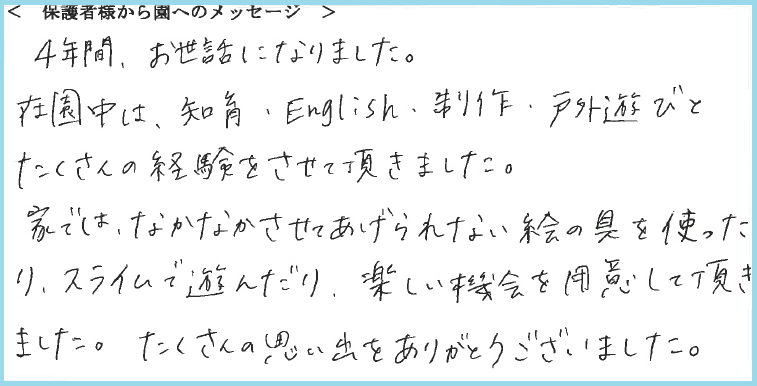 ＜ 保護者様から園へのメッセージ ＞
4年間、お世話になりました。
在園中は、知育・English・制作・戸外遊びと
たくさんの経験をさせて頂きました。
家では、なかなかさせてあげられない絵の具を使った
り、スライムで遊んだり、楽しい機会を用意して頂き
ました。たくさんの思い出をありがとうございました。